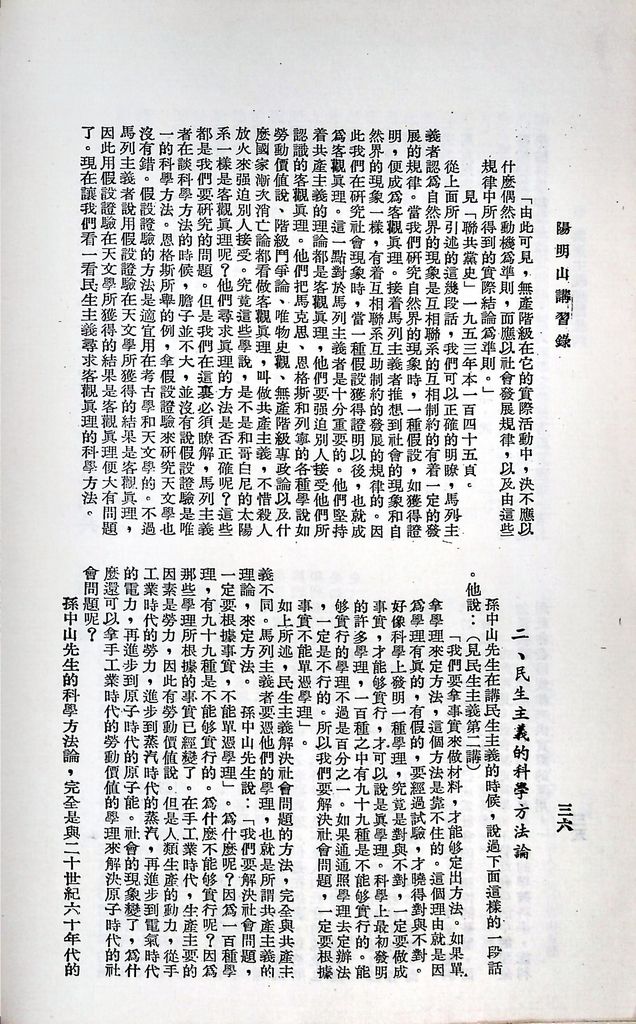 陽明山講習錄
三六
「由此可見，無產階級在它的實際活動中，決不應以
什麼偶然動機為準則，而應以社會發展規律，以及由這些
規律中所得到的實際結論為準則。」
見「聯共黨史」一九五三年本一百四十五頁。
從上面所引述的這幾段話，我們可以正確的明瞭，馬列主
義者認為自然界的現象是互相聯系的互相制約的有着一定的發
展的規律。當我們研究自然界的現象時，一種假設，如獲得證
明，便成為客觀真理。接着馬列主義者推想到社會的現象和自
然界的現象一樣，有着互相聯系互助制約的發展的規律的。因
此我們在研究社會現象時，當一種假設獲得證明以後，也就成
為客觀真理。這一點對於馬列主義者是十分重要的。他們堅持
着共產主義的理論都是客觀真理，他們要强迫別人接受他們所
認識的客觀真理。他們把馬克思、恩格斯和列寧的各種學說如
勞動價值說、階級鬥爭論、唯物史觀、無產階級專政論以及什
麼國家漸次消亡論都看做客觀真理，叫做共產主義，不惜殺人
放火來强迫別人接受。究竟這些學說，是不是和哥白尼的太陽
系一樣是客觀真理呢？他們尋求真理的方法是否正確呢？這些
都是我們要研究的問題。但是我們在這裏必須瞭解，馬列主義
者在談科學方法的時候，膽子並不大，並沒有說假設證驗是唯
一的科學方法。恩格斯所舉的例，拿假設證驗來研究天文學也
沒有錯。假設證驗的方法是適宜用在考古學和天文學的。不過
馬列主義者說用假設證驗在天文學所獲得的結果是客觀真理，
因此用假設證驗在天文學所獲得的結果是客觀真理便大有問題
了。現在讓我們看一看民生主義尋求客觀真理的科學方法。
二、民生主義的科學方法論
孫中山先生在講民生主義的時候，說過下面這樣的一段話
。他說：（見民生主義第二講）
「我們要拿事實來做材料，才能够定出方法。如果單
拿學理來定方法，這個方法是靠不住的。這個理由就是因
為學理有真的，有假的，要經過試驗，才曉得對與不對。
好像科學上發明一種學理，究竟是對與不對，一定要做成
事實，才能够實行，才可以說是真學理。科學上最初發明
的許多學理，一百種之中有九十九種是不能够實行的。能
够實行的學理不過是百分之一。如果通通照學理去定辦法
，一定是不行的。所以我們要解決社會問題，一定要根據
事實不能單憑學理」。
如上所述，民生主義解決社會問題的方法，完全與共產主
義不同。馬列主義者要憑他們的學理，也就是所謂共產主義的
理論，來定方法。　孫中山先生說：「我們要解決社會問題，
一定要根據事實，不能單憑學理」。為什麼呢？因為一百種學
理，有九十九種是不能够實行的。為什麼不能够實行呢？因為
那些學理所根據的事實已經變了。在手工業時代，生產主要的
因素是勞力，因此有勞動價值說。但是人類生產的動力，從手
工業時代的勞力，進步到蒸汽時代的蒸汽，再進步到電氣時代
的電力，再進步到原子時代的原子能。社會的現象變了，為什
麼還可以拿手工業時代的勞動價值的學理來解決原子時代的社
會問題呢？
孫中山先生的科學方法論，完全是與二十世紀六十年代的